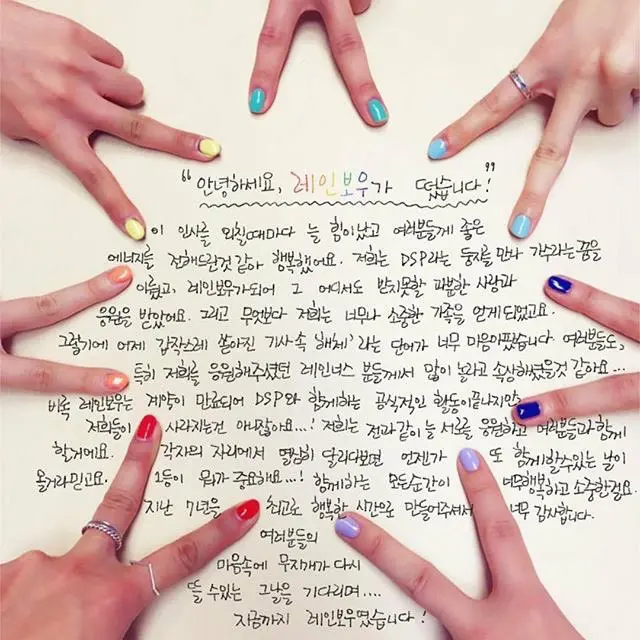 "안녕하세요, 레인보우가 떴습니다!"
이 인사를 외칠때마다 늘 힘이났고 여러분들께 좋은
에너지를 전해드린것 같아 행복했어요. 저희는 DSP라는 둥지를 만나 가수라는 꿈을
이뤘고, 레인보우가되어 그 어디서도 받지못할 과분한 사랑과
응원을 받았어요. 그리고 무엇보다 저희는 너무나 소중한 가족을 얻게되었고요.
그렇기에 어제 갑작스레 쏟아진 기사속 '해체' 라는 단어가 너무 마음아팠습니다. 여러분들도,
특히 저희를 응원해주셨던 레인너스 분들께서 많이 놀라고 속상해하셨을것 같아요...
비록 레인보우는 계약이 만료되어 DSP와 함께하는 공식적인 활동이끝나지만
저희들이 사라지는건 아니잖아요...! 저희는 전과같이 늘 서로를 응원하고 여러분들과 함께
할거에요. 각자의 자리에서 열심히 달리다보면 언젠가 또 함께할수있는 날이
올거라믿고요. 1등이 뭐가 중요해요...! 함께하는 모든순간이 행복하고 소중한걸요.
지난 7년을 최고로 행복한 시간으로 만들어주셔서 너무 감사합니다.
여러분들의
마음속에 무지개가 다시
뜰 수있는 그날을 기다리며....
지금까지 레인보우였습니다!